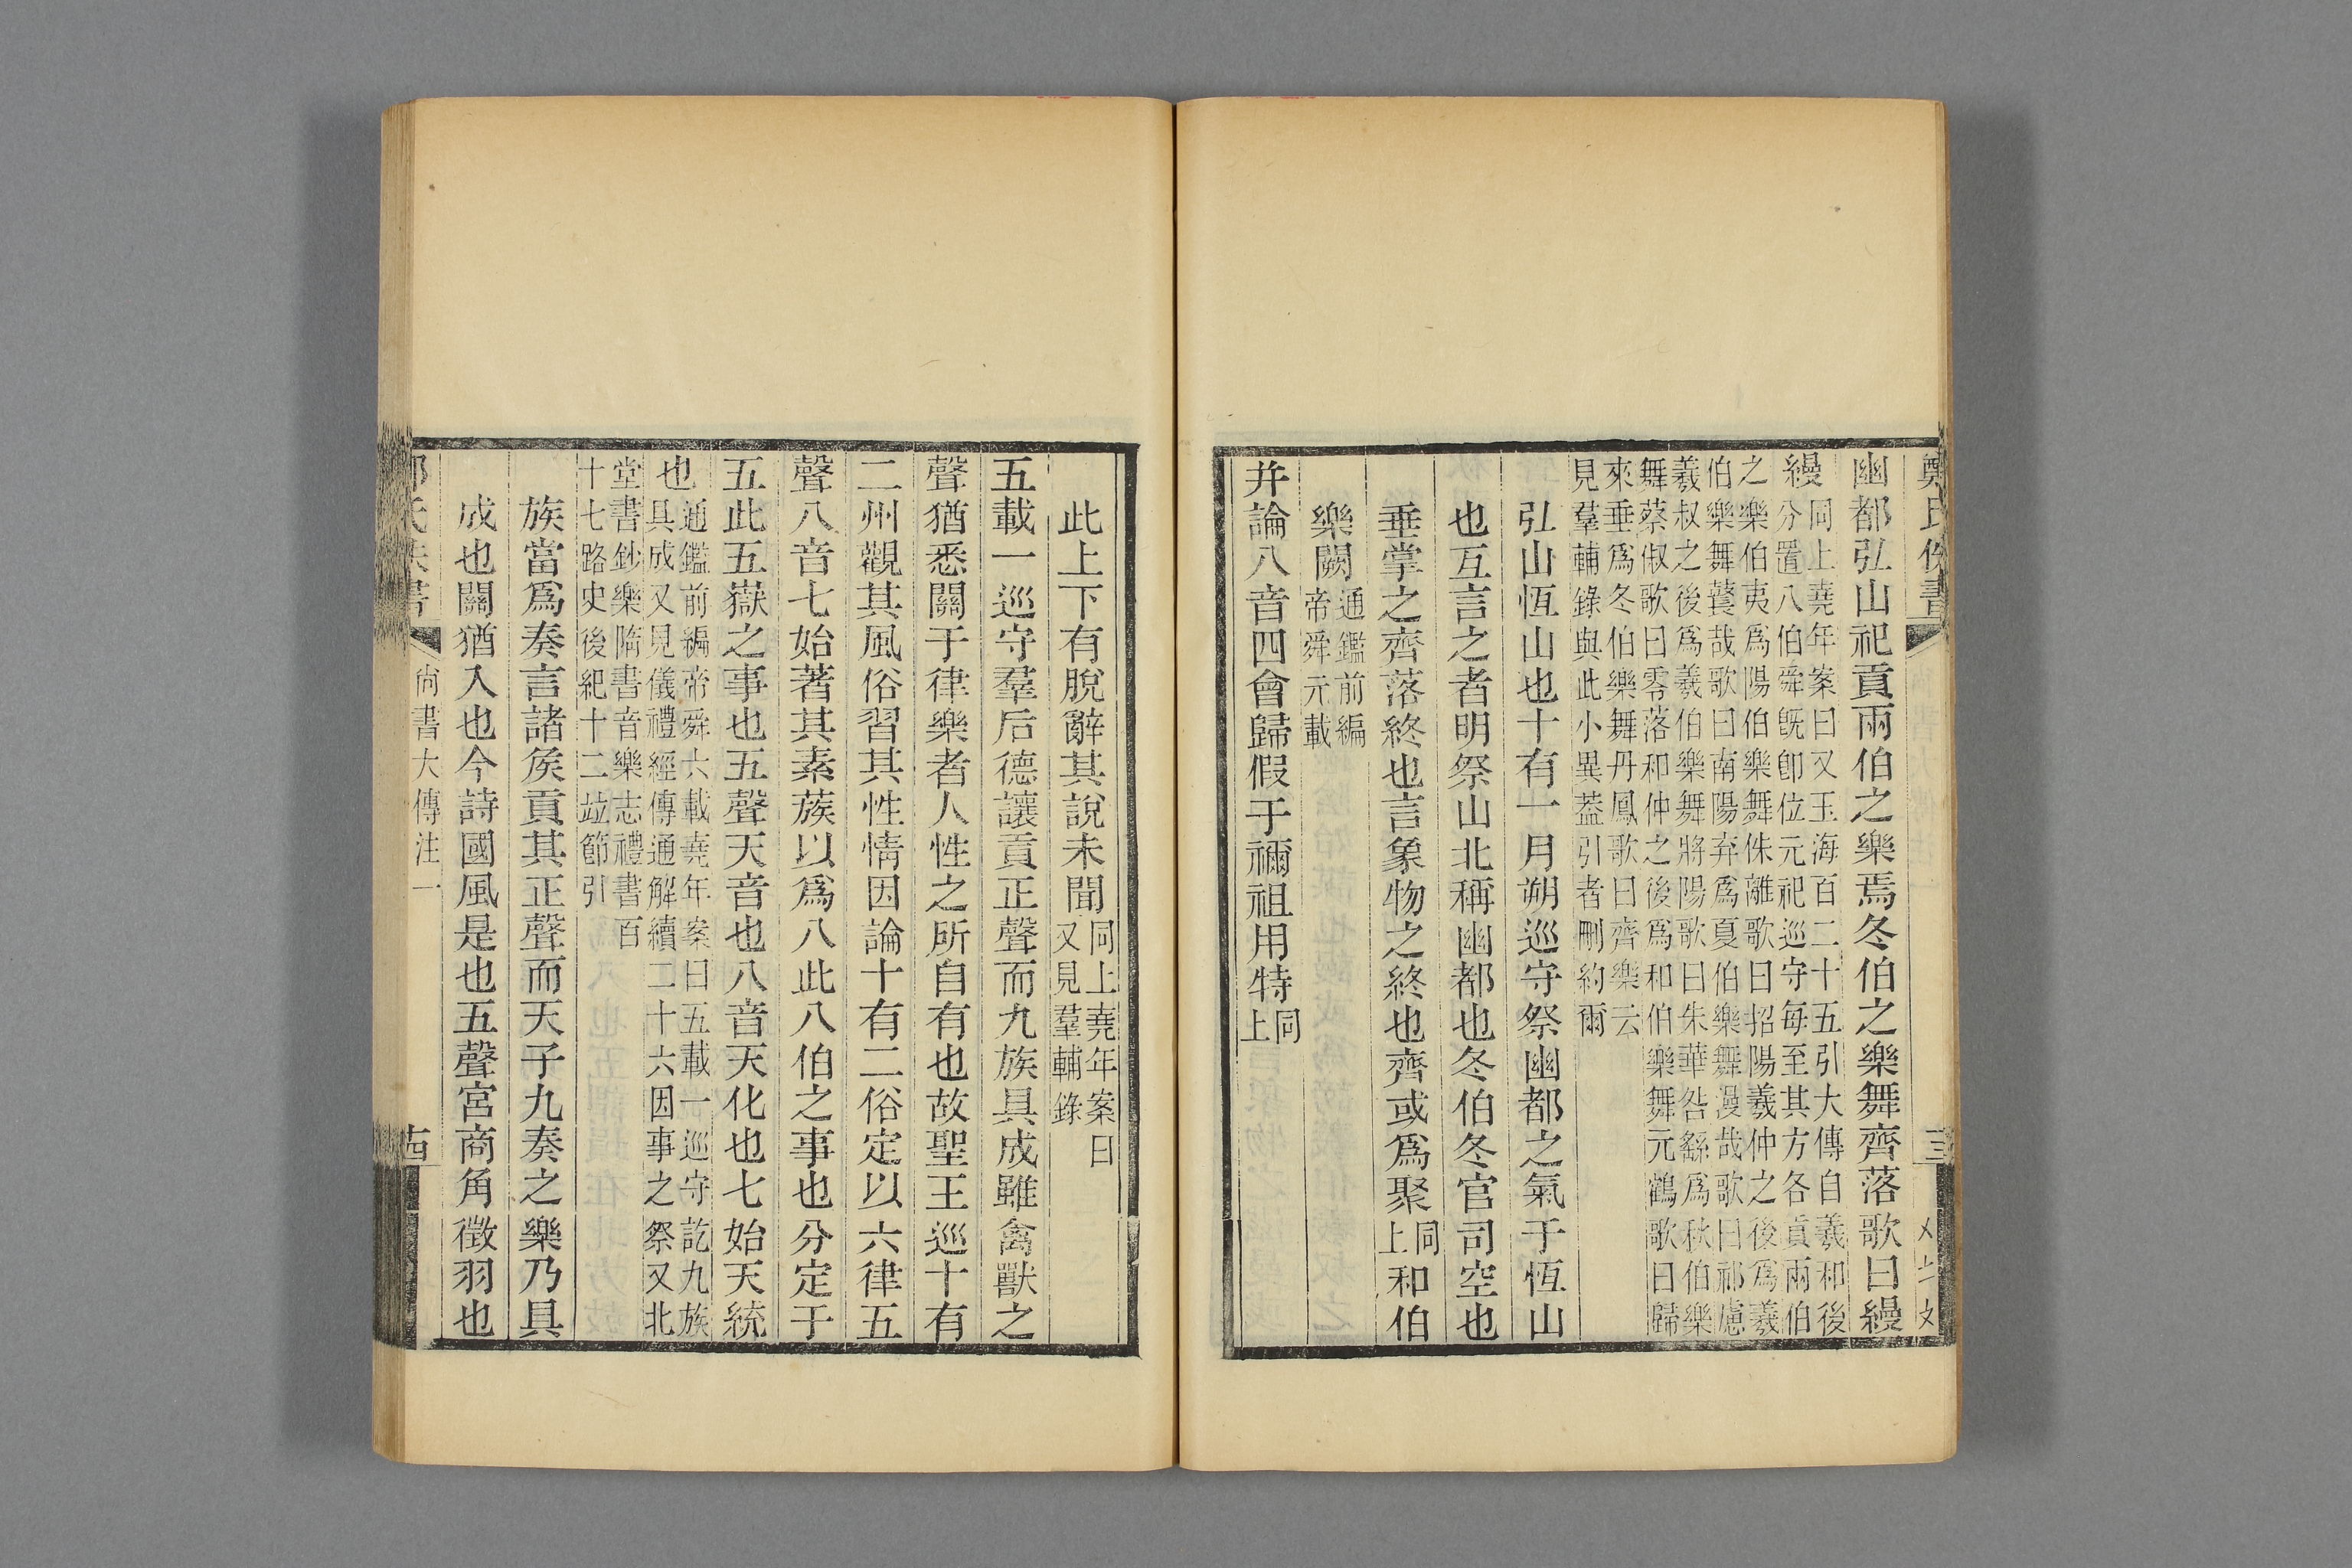 鄭氏佚書
幽都弘山祀貢兩伯之樂焉冬伯之樂舞齊落歌曰縵
縵
同上堯年案曰又玉海百二十五引大傳自羲和後
分置八伯舜旣卽位元祀巡守每至其方各貢兩伯
之樂伯夷爲陽伯樂舞侏離歌曰招陽羲仲之後爲羲
伯樂舞鼚哉歌曰南陽弃爲夏伯樂舞漫哉歌曰祁慮
羲叔之後爲羲伯樂舞將陽歌曰朱華咎繇爲秋伯樂
舞蔡俶歌曰零落和仲之後爲和伯樂舞元鶴歌曰歸
來垂爲冬伯樂舞丹鳳歌曰齊樂云
見羣輔錄與此小異葢引者刪約爾
弘山恆山也十有一月朔巡守祭幽都之氣于恆山
也互言之者明祭山北稱幽都也冬伯冬官司空也
垂掌之齊落終也言象物之終也齊或爲聚同上和伯
樂闕
通鑑前編
帝舜元載
并論八音四會歸假于禰祖用特同上
此上下有脫辭其說未聞
同上堯年案曰
又見羣輔錄
五載一巡守羣后德讓貢正聲而九族具成雖禽獸之
聲猶悉關于律樂者人性之所自有也故聖王巡十有
二州觀其風俗習其性情因論十有二俗定以六律五
聲八音七始著其素蔟以爲八此八伯之事也分定于
五此五嶽之事也五聲天音也八音天化也七始天統
也
通鑑前編帝舜六載堯年案曰五載一巡守訖九族
具成又見儀禮經傳通解續二十六因事之祭又北
堂書鈔樂隋書音樂志禮書百
十七路史後紀十二竝節引
族當爲奏言諸矦貢其正聲而天子九奏之樂乃具
成也關猶入也今詩國風是也五聲宮商角徵羽也
尚書大傳注一